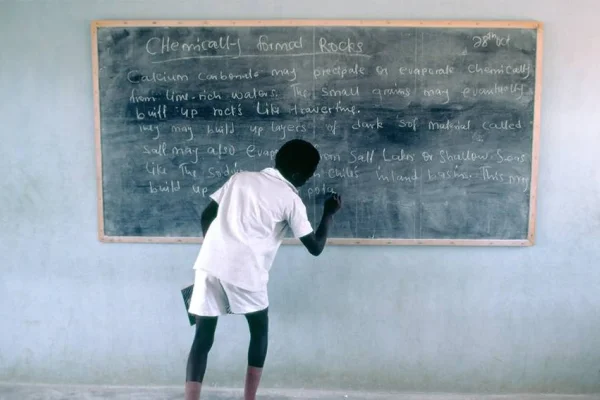 Chemically formal Rocks
28th Oct
Calcium carbonate may precipitate or evaporate chemically
from lime-rich waters. The small grains may eventually
build up rocks Like travertine.
may build up layers of dark soft material called
salt may also Salt Lakes or Shallow Seas
Like The inland basins. This may
build up